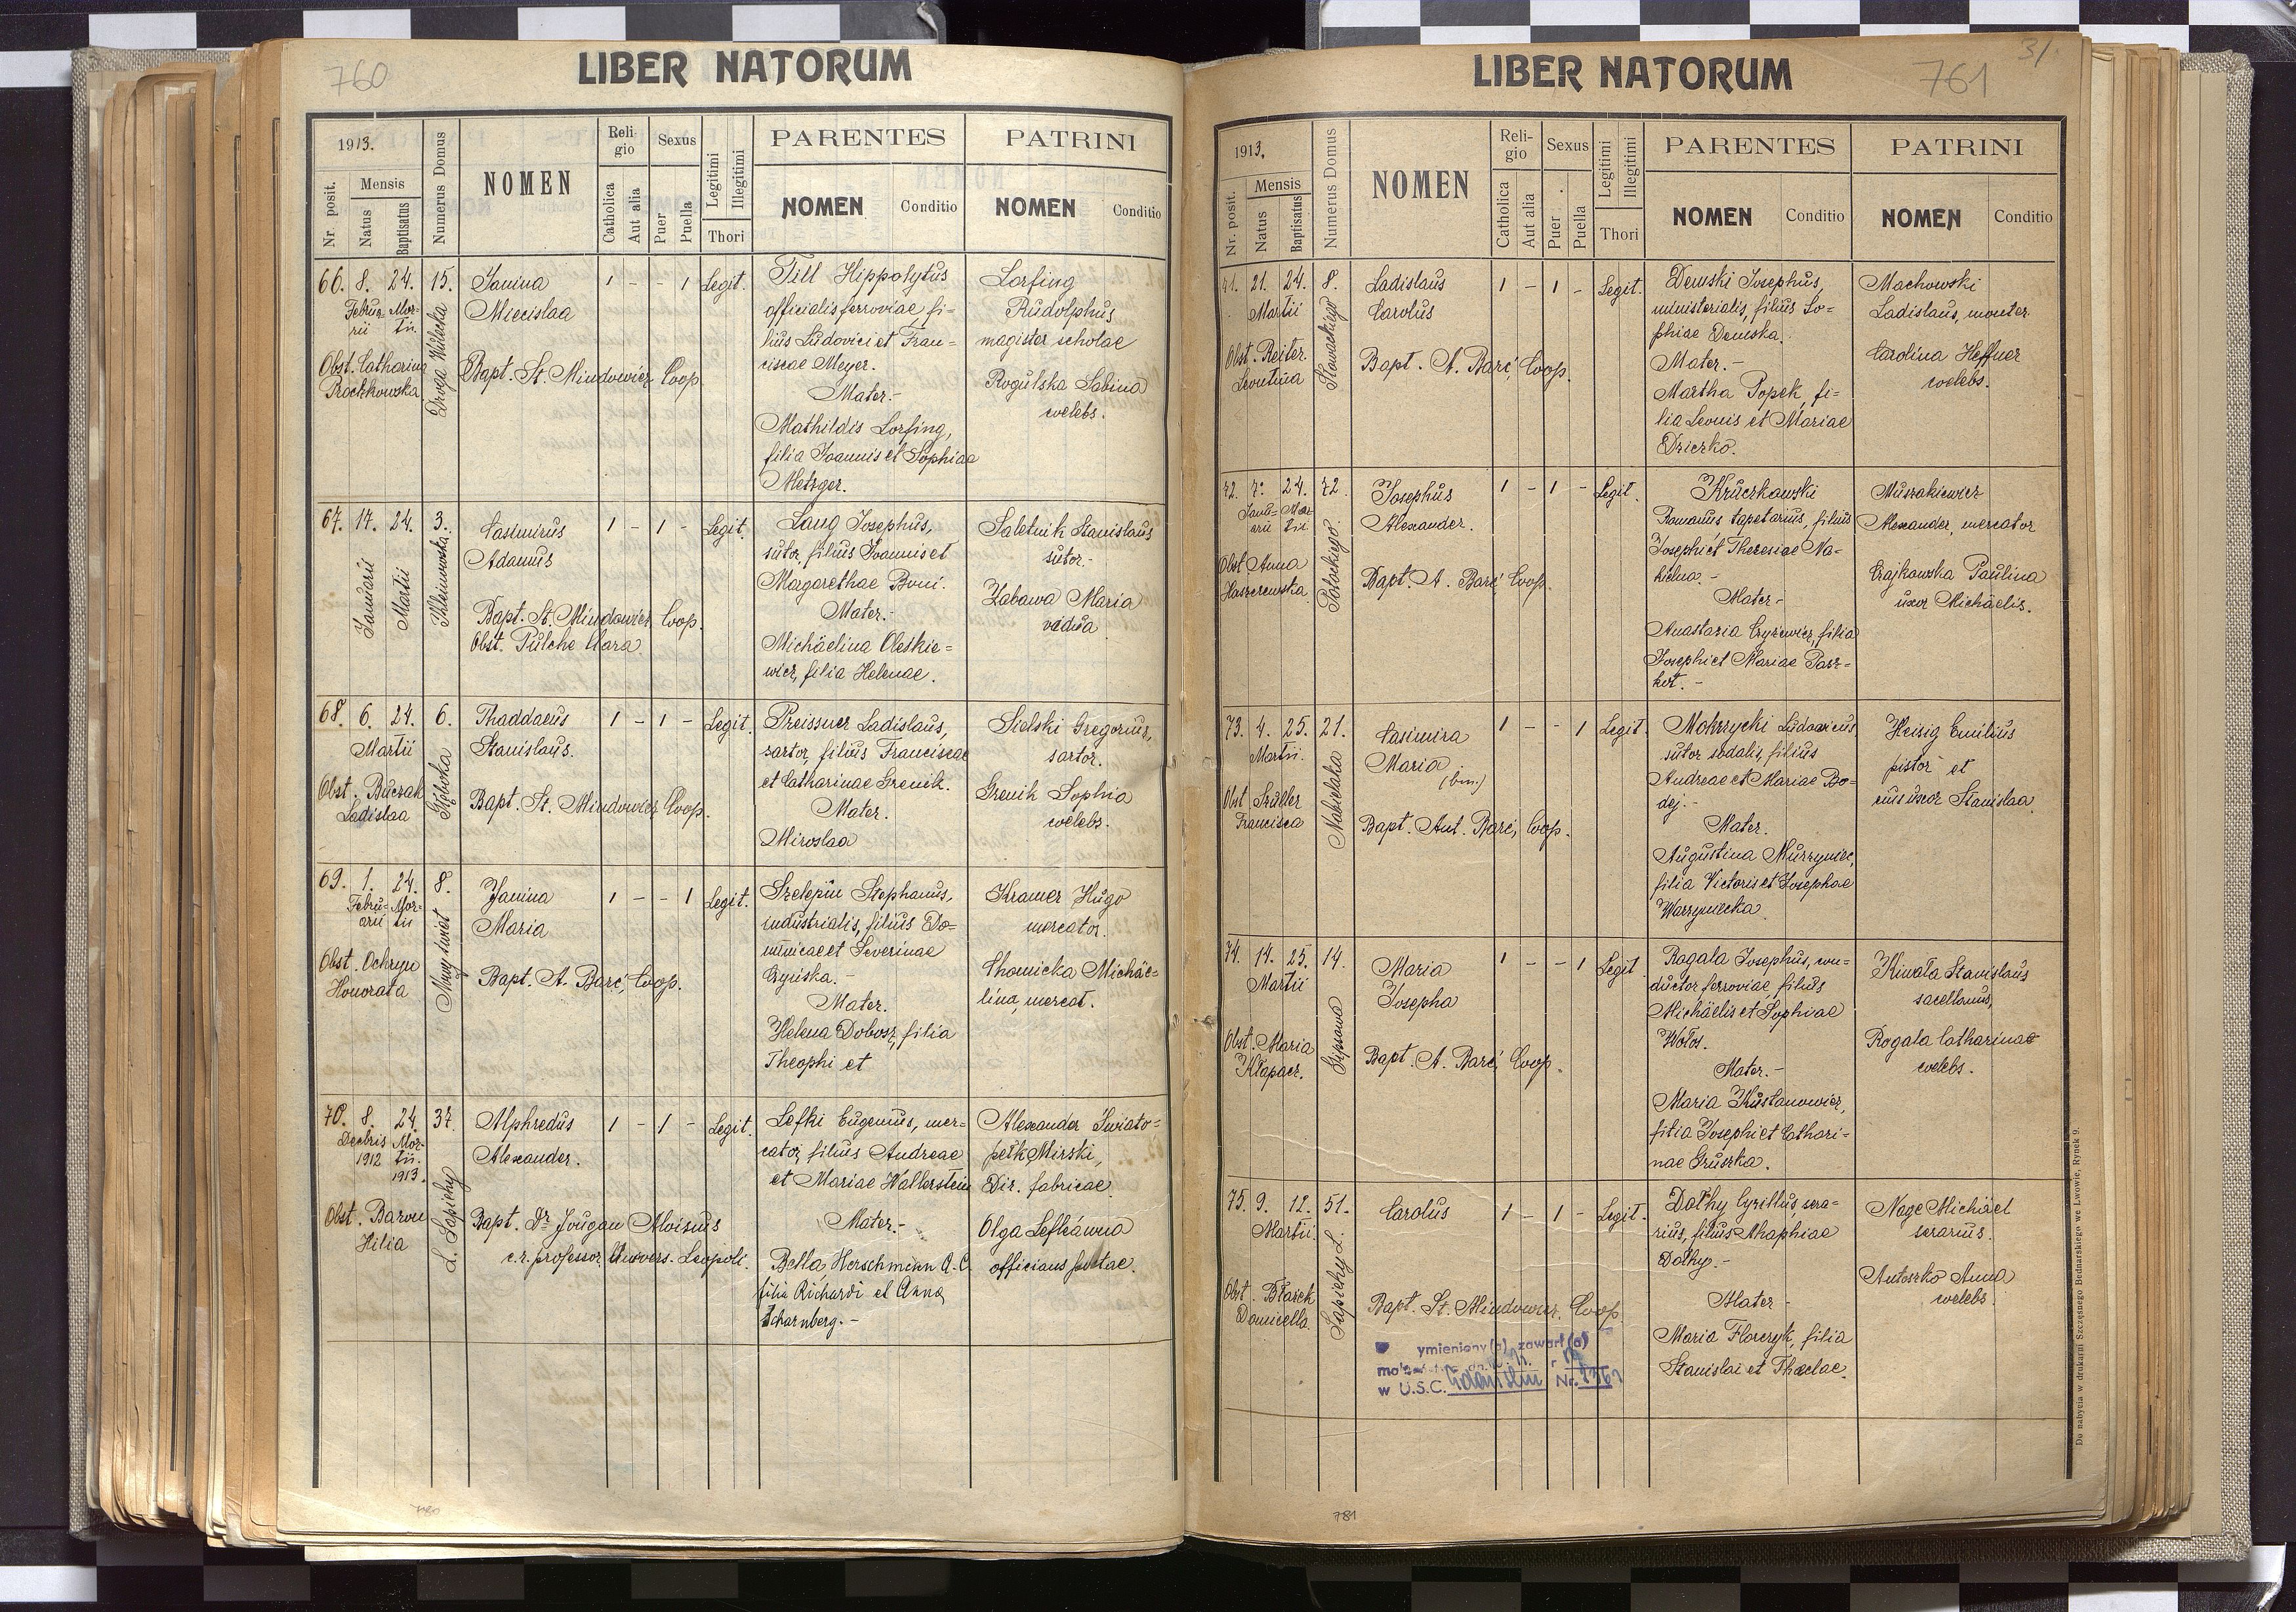 760
LIBER NATORUM
1913.
Nr. posit.
Mensis
Natus
Baptisatus
Numerus Domus
NOMEN
Religio
Catholica
Aut alia
Sexus
Puer
Puella
Legitimi
Illegitimi
Thori
PARENTES
NOMEN
Conditio
PATRINI
NOMEN
Conditio
66. 8. 24. 15.
Februarii Martii
Droga Wulecka
Janina
Miecislaa
1 - - 1 Legit.
Obst. Catharina
Prochkowska
Bapt. St. Mindowicz Coop.
Till Hippolytus
officialis ferroviae, fi=
lius Ludovici et Fran=
ciscae Meyer.
Mater.-
Mathildis Lorfing,
filia Joannis et Sophiae
Metzger.
Lorfing
Rudolphus
magister scholae
Rogulska Sabina
coelebs.
67. 17. 24. 3.
Januarii
Martii
Kleinowska
Casimirus
Adamus
1 - 1 - Legit.
Bapt. St. Mindowicz Coop.
Obst. Pulche Clara
Lang Josephus,
sutor, filius Joannis et
Margarethae Boni.
Mater.-
Michäelina Oleskie=
wicz, filia Helenae.
Saletnik Stanislaus
sutor.-
Zabawa Maria
vidua
68. 6. 24. 6.
Martii
Głęboka
Thaddaeus
Stanislaus.
1 - 1 - Legit.
Obst. Buczak
Ladislaa
Bapt. St. Mindowicz Coop.
Preissner Ladislaus,
sartor, filius Franciscae
et Catharinae Grenik.
Mater.
Miroslaa
Sielski Gregorius,
sartor.
Grenik Sophia
coelebs.
69. 1. 24. 8.
Februarii Martii
Janina
Maria
1 - - 1 Legit.
Obst. Ochryn
Honorata
Bapt. A. Barć, Coop.
Szelepin Stephanus,
industrialis, filius Do=
minicae et Severinae
Czyńska.-
Mater.
Helena Dobosz, filia
Theophi et
Kramer Hugo
mercator.
Chomicka Michäe=
lina, mercat.
70. 8. 24. 37.
Decbris Martii
1912 1913.
L. Sapiehy
Alphredus
Alexander.
1 - 1 - Legit.
Obst. Baron
Hilia
Bapt. Dr Jougan Aloisius
c.r. professor Univers. Leopoli.
Lefki Eugenius, mer=
cator, filius Andreae
et Mariae Wallerstein
Mater.-
Bella Herschmann A. C.
filia Richardi et Anna
Scharnberg.-
Alexander Świato=
pełk Mirski,
Dir. fabricae.
Olga
officians postae.
780
LIBER NATORUM
761
31
1913.
Nr. posit.
Mensis
Natus
Baptisatus
Numerus Domus
NOMEN
Religio
Catholica
Aut alia
Sexus
Puer
Puella
Legitimi
Illegitimi
Thori
PARENTES
NOMEN
Conditio
PATRINI
NOMEN
Conditio
71. 21. 24. 8.
Martii
Słowackiego
Ladislaus
Carolus
1 - 1 - Legit.
Obst. Reiter
Leontina
Bapt. A. Barć, Coop.
Demski Josephus,
ministerialis, filius So=
phiae Demska.
Mater.-
Martha Popek, fi=
lia Leonis et Mariae
Dziczko.
Machowski
Ladislaus, monter
Carolina Heffner
coelebs.
72. 7. 24. 72.
Januarii Martii
Potockiego
Josephus
Alexander.
1 - 1 - Legit.
Obst. Anna
Haszczewska
Bapt. A. Barć Coop.
Kruczkowski
Romanus tapetarius, filius
Josephi et Theresiae Na=
hielna.-
Mater.-
Anastazia Czyżewicz, filia
Josephi et Mariae Parz=
kot.-
Muszakiewicz
Alexander, mercator
Czajkowska Paulina
uxor Michäelis.
73. 4. 25. 21.
Martii.
Nabielaka
Casimira
Maria
(bin.)
1 - - 1 Legit.
Obst. Szuller
Francisca
Bapt. Ant. Barć, Coop.
Mokrzycki Ludovicus
sutor sodalis, filius
Andreae et Mariae Bo=
dej.-
Mater.
Augustina Murzyniec,
filia Victoris et Josephae
Warzyniecka.
Heisig Emilius
pistor et
eius uxor Stanislaa
74. 14. 25. 14.
Martii
Gipsowa
Maria
Josepha
1 - - 1 Legit.
Obst. Maria
Kłapacz.
Bapt. A. Barć, Coop.
Rogala Josephus, con=
ductor ferroviae, filius
Michäelis et Sophiae
Wołos.
Mater.-
Maria Kustanowicz,
filia Josephi et Cathari=
nae Gruszka.
Kiwała Stanislaus
sacellanus,
Rogala Catharina
coelebs.
75. 9. 12. 51.
Martii.
Sapiehy L.
Carolus
1 - 1 - Legit.
Obst. Błasek
Domicella
Bapt. St. Mindowicz, Coop.
Dolhy Cyrillus, sera=
rius, filius Ahaphiae
Dolhy.-
Mater-
Maria Florczyk, filia
Stanislai et Theclae.
Nage Michäel
serarius.
Antoszko Anna
coelebs.
ymieniony(a) zawarł(a)
w U.S.C. Gdańsku Nr.
781
Do nabycia w drukarni Szczęsnego Bednarskiego we Lwowie, Rynek 9.